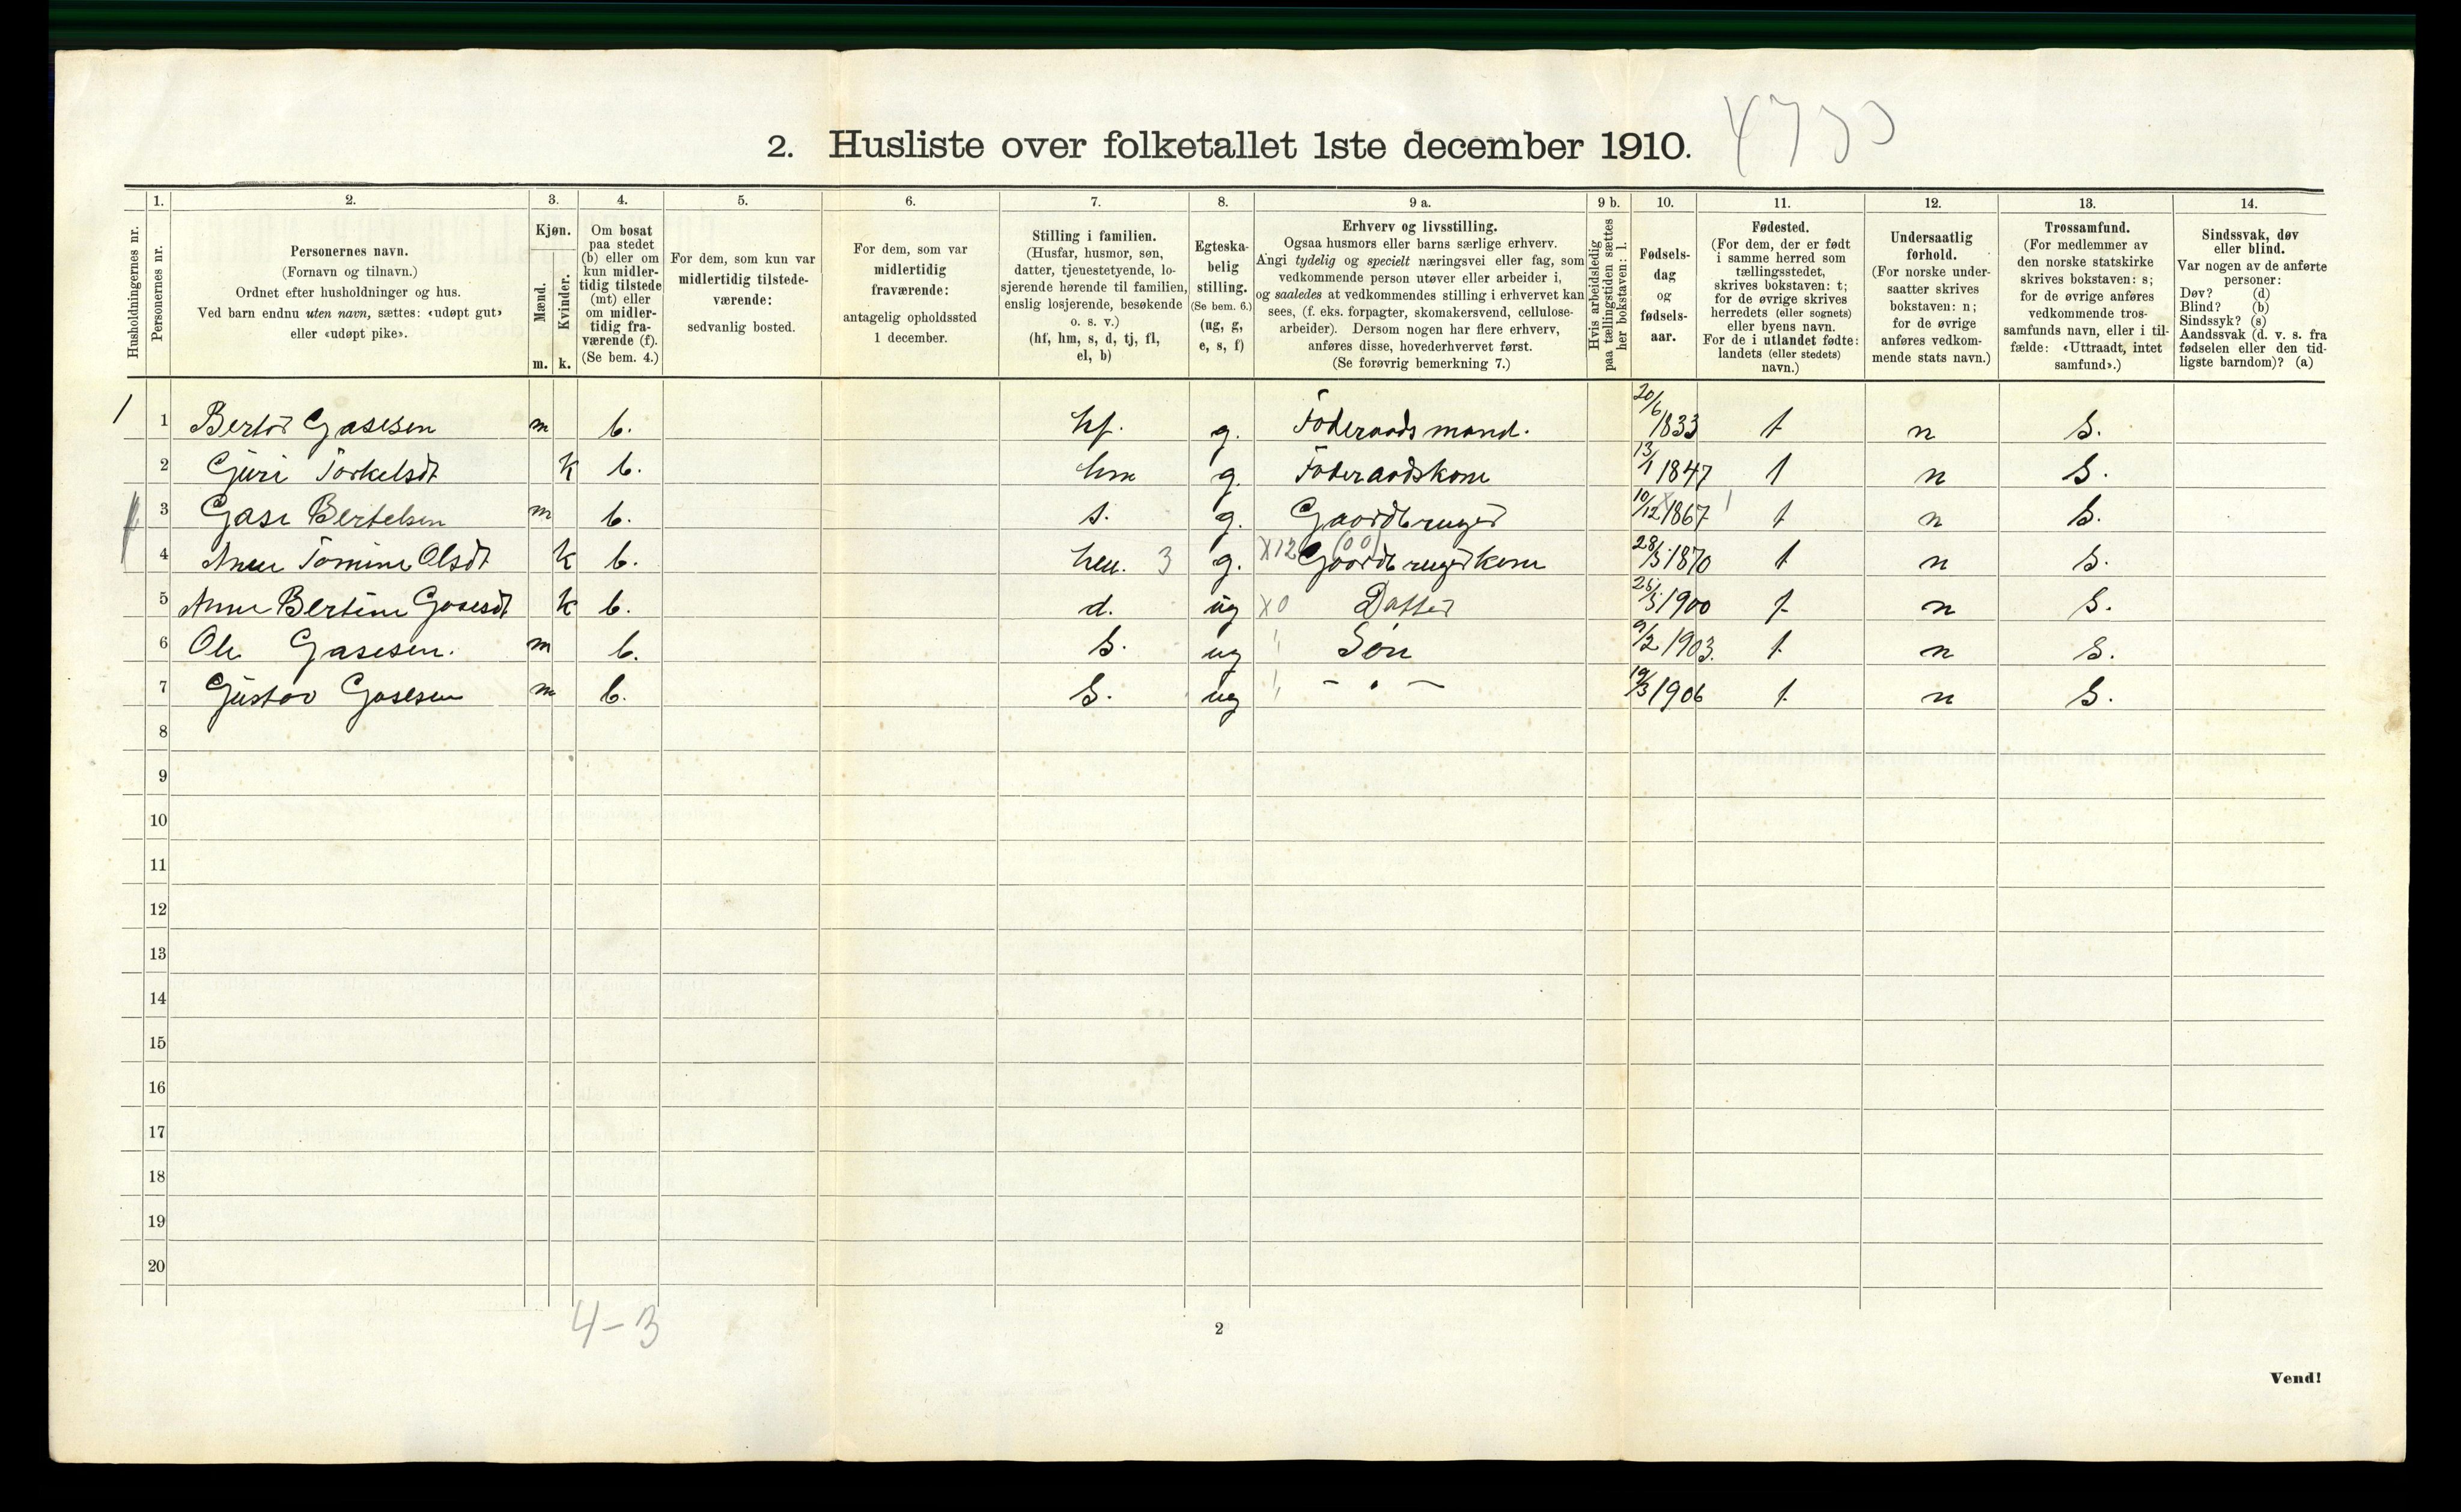 2. Husliste over folketallet 1ste december 1910.
1. 2. 3. 4. 5. 6. 7. 8. 9 a. 9 b. 10. 11. 12. 13. 14.
Husholdningernes nr.
Personernes nr.
Personernes navn.
(Fornavn og tilnavn.)
Ordnet efter husholdninger og hus.
Ved barn endnu uten navn, sættes: «udøpt gut»
eller «udøpt pike».
Kjøn.
Mænd.
Kvinder.
m. k.
Om bosat
paa stedet
(b) eller om
kun midler-
tidig tilstede
(mt) eller
om midler-
tidig fra-
værende (f).
(Se bem. 4.)
For dem, som kun var
midlertidig tilstede-
værende:
sedvanlig bosted.
For dem, som var
midlertidig
fraværende:
antagelig opholdssted
1 december.
Stilling i familien.
(Husfar, husmor, søn,
datter, tjenestetyende, lo-
sjerende hørende til familien,
enslig losjerende, besøkende
o. s. v.)
(hf, hm, s, d, tj, fl,
el, b)
Egteska-
belig
stilling.
(Se bem. 6.)
(ug, g,
e, s, f)
Erhverv og livsstilling.
Ogsaa husmors eller barns særlige erhverv.
Angi tydelig og specielt næringsvei eller fag, som
vedkommende person utøver eller arbeider i,
og saaledes at vedkommendes stilling i erhvervet kan
sees, (f. eks. forpagter, skomakersvend, cellulose-
arbeider). Dersom nogen har flere erhverv,
anføres disse, hovederhvervet først.
(Se forøvrig bemerkning 7.)
Hvis arbeidsledig
paa tællingstiden sættes
her bokstaven: l.
Fødsels-
dag
og
fødsels-
aar.
Fødested.
(For dem, der er født
i samme herred som
tællingsstedet,
skrives bokstaven: t;
for de øvrige skrives
herredets (eller sognets)
eller byens navn.
For de i utlandet fødte:
landets (eller stedets)
navn.)
Undersaatlig
forhold.
(For norske under-
saatter skrives
bokstaven: n;
for de øvrige
anføres vedkom-
mende stats navn.)
Trossamfund.
(For medlemmer av
den norske statskirke
skrives bokstaven: s;
for de øvrige anføres
vedkommende tros-
samfunds navn, eller i til-
fælde: «Uttraadt, intet
samfund».)
Sindssvak, døv
eller blind.
Var nogen av de anførte
personer:
Døv? (d)
Blind? (b)
Sindssyk? (s)
Aandssvak (d. v. s. fra
fødselen eller den tid-
ligste barndom)? (a)
1 1 Bertor Gasesen m b. hf. g. Föderaadsmand. 20/6 1833 t n S.
2 Guri Torkelsdt k b. hm g. Föderaadskone 13/1 1847 t n S.
3 Gase Bertelsen m b. s. g. Gaardbruger 10/12 1867 t n S.
4 Anne Tomine Olsdt k b. hm. 3 g. X12 (00) Gaardbrugerkone 28/5 1870 t n S.
5 Anne Bertine Gasesdt k b. d. ug X0 Datter 25/5 1900 t n S.
6 Ole Gasesen. m b. S. ug Sön 9/2 1903. t n S.
7 Gustav Gasesen m b. S. ug - " - 19/3 1906 t n S.
8
9
10
11
12
13
14
15
16
17
18
19
20
4-3
2
Vend!